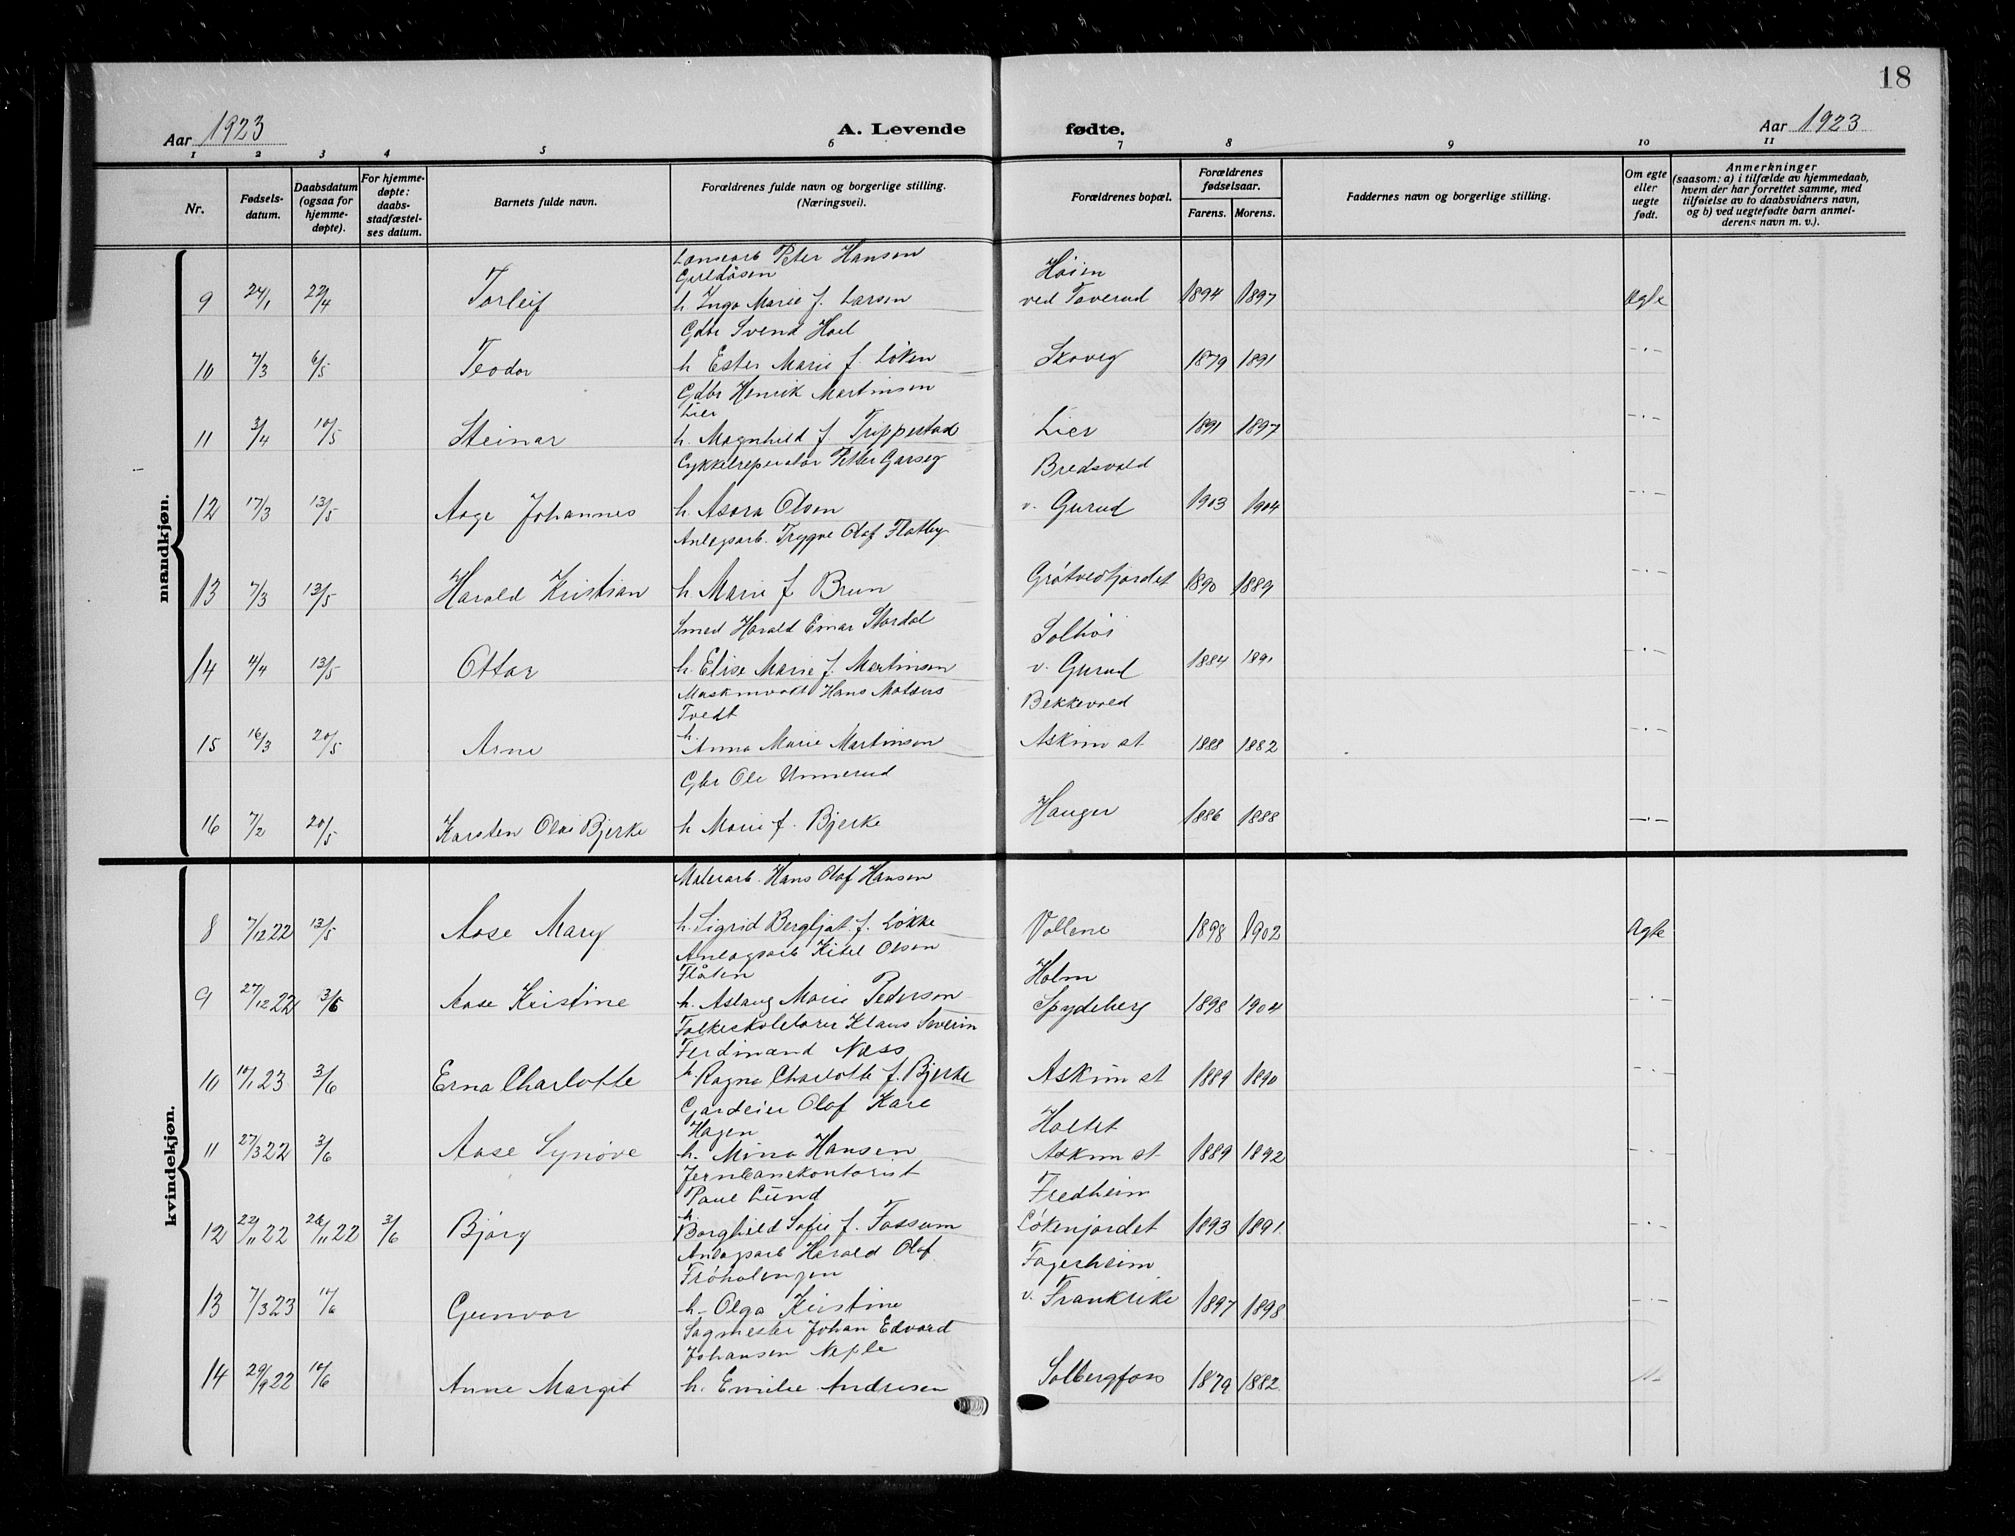 18
Aar 1923 A. Levende fødte. Aar 1923
1 2 3 4 5 6 7 8 9 10 11
Nr. Fødselsdatum. Daabsdatum (ogsaa for hjemmedøpte). For hjemmedøpte: daabsstadfæstelses datum. Barnets fulde navn. Forældrenes fulde navn og borgerlige stilling. (Næringsvei). Forældrenes bopæl. Forældrenes fødselsaar. Farens. Morens. Faddernes navn og borgerlige stilling. Om egte eller uegte født. Anmerkninger (saasom: a) i tilfælde av hjemmedaab, hvem der har forrettet samme, med tilføielse av to daabsvidners navn, og b) ved uegtefødte barn anmelderens navn m. v.).
mandkjøn.
Peter Hansen
Høien
9 24/1 22/4 Torleif h. Inga Marie f. Larsen ved Toverud 1894 1897 Ægte
Gdbr Svend Hoel
10 7/3 6/5 Teodor h Ester Marie f. Løken Skoveg 1879 1891 -·-
Gdbr Henrik Martinsen
Lier
11 3/4 10/5 Steinar h. Magnhild f. Trippestad Lier 1891 1897 -·-
Cykkelreperatør Petter Garseg Bredsvold
12 17/3 13/5 Aage Johannes h. Asora Olsen v. Gurud 1903 1904 -·-
Anlægsarb. Trygve Olaf Flatby
13 7/3 13/5 Harald Kristian h Marie f Brun Grøtvedtjordet 1890 1889 -·-
Smed Harald Einar Stordal Solhøi
14 /4 13/5 Ottar h. Elise Marie f. Martinsen v. Gurud 1884 1891 -·-
Hans Tvedt Bekkevold
15 16/3 20/5 Arne h. Anna Marie Martinsen Askim st 1888 1882 -·-
Gbr Ole Unnerud
16 7/2 20/5 Karsten Olai Bjerke h Marie f. Bjerke Hauger 1886 1888 -·-
kvindekjøn.
Malerarb. Hans Olaf Hansen
8 7/12 22 13/5 Aase Mary h. Sigrid Bergljot f. Løkke Vollene 1898 1902 Ægte
Anlægsarb Kitel Olsen
Flåten Holm
9 27/12 22 3/6 Aase Kristine h. Aslaug Marie Pederson Spydeberg 1898 1904 -·-
Folkeskolelærer Klaus Severin
Ferdinand Næss
10 10/1 23 3/6 Erna Charlotte h. Ragna Charlotte f. Bjerke Askim st 1889 1890 -·-
Gardeier Olaf Kare
Hagen Holtet
11 27/3 22 3/6 Aase Synøve h. Mina Hansen Askim st 1889 1892 -·-
Jernbanekontorist
Paul Lund Fredheim
12 22/11 22 26/11 22 3/6 Bjørg h. Borghild Sofie f. Fossum Løkenjordet 1893 1891 -·-
Anlægsarb Harald Olaf
Frøholengen Fagerheim
13 7/3 23 /6 Gunvor h. Olga Kristine v. Frankrike 1897 1898 -·-
Sagmester Johan Edvard
Johansen Næple
14 29/9 22 10/6 Anne Margit h. Emilie Andresen Solbergfoss 1879 1882